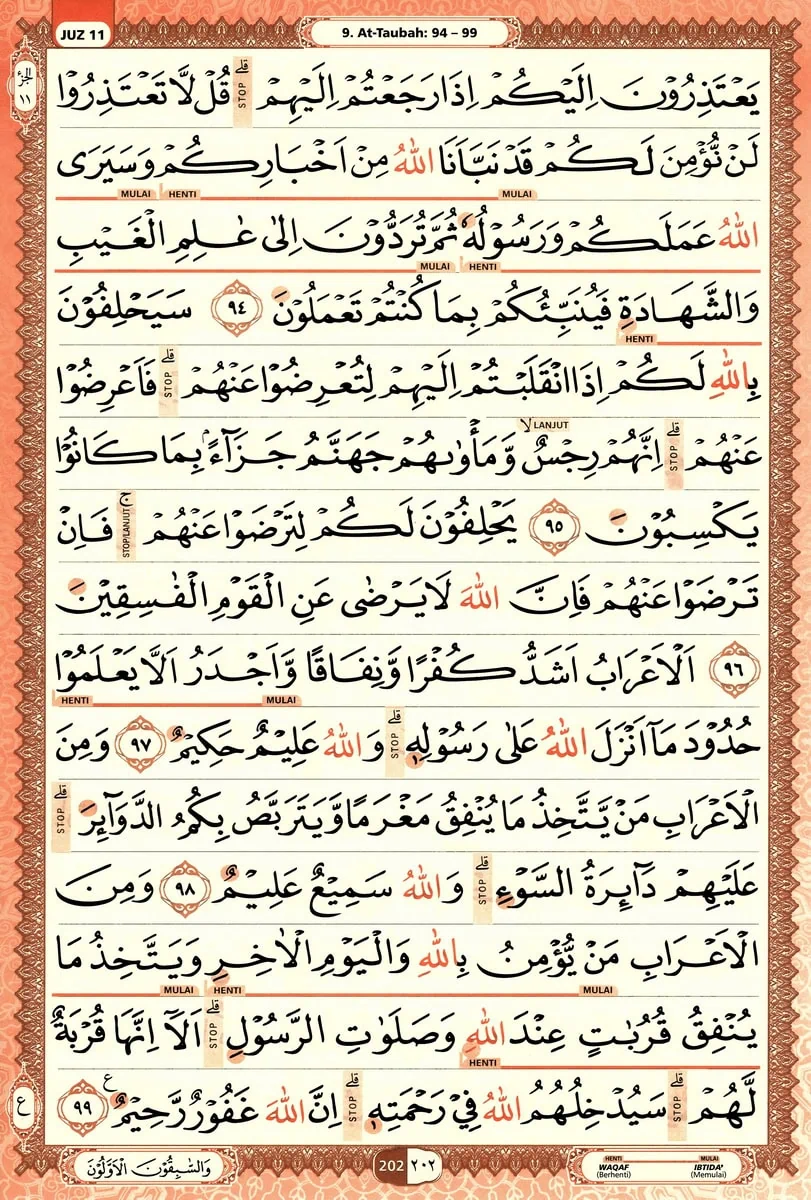 JUZ 11
9. At-Taubah: 94 – 99
الجزء ١١
يَعْتَذِرُوْنَ اِلَيْكُمْ اِذَا رَجَعْتُمْ اِلَيْهِمْ ۗ STOP قُلْ لَّا تَعْتَذِرُوْا
لَنْ نُّؤْمِنَ لَكُمْ قَدْ نَبَّاَنَا اللّٰهُ مِنْ اَخْبَارِكُمْ وَسَيَرَى
MULAI HENTI MULAI
اللّٰهُ عَمَلَكُمْ وَرَسُوْلُهٗ ثُمَّ تُرَدُّوْنَ اِلٰى عٰلِمِ الْغَيْبِ
MULAI HENTI
وَالشَّهَادَةِ فَيُنَبِّئُكُمْ بِمَا كُنْتُمْ تَعْمَلُوْنَ ٩٤ سَيَحْلِفُوْنَ
HENTI
بِاللّٰهِ لَكُمْ اِذَا انْقَلَبْتُمْ اِلَيْهِمْ لِتُعْرِضُوْا عَنْهُمْ ۗ STOP فَاَعْرِضُوْا
عَنْهُمْ ۗ STOP اِنَّهُمْ رِجْسٌ ۙ LANJUT وَّمَأْوٰىهُمْ جَهَنَّمُ جَزَاۤءً ۢبِمَا كَانُوْا
يَكْسِبُوْنَ ٩٥ يَحْلِفُوْنَ لَكُمْ لِتَرْضَوْا عَنْهُمْ ۚ STOP/LANJUT فَاِنْ
تَرْضَوْا عَنْهُمْ فَاِنَّ اللّٰهَ لَا يَرْضٰى عَنِ الْقَوْمِ الْفٰسِقِيْنَ
٩٦ اَلْاَعْرَابُ اَشَدُّ كُفْرًا وَّنِفَاقًا وَّاَجْدَرُ اَلَّا يَعْلَمُوْا
MULAI HENTI
حُدُوْدَ مَآ اَنْزَلَ اللّٰهُ عَلٰى رَسُوْلِهٖ ۗ STOP وَاللّٰهُ عَلِيْمٌ حَكِيْمٌ ٩٧ وَمِنَ
الْاَعْرَابِ مَنْ يَّتَّخِذُ مَا يُنْفِقُ مَغْرَمًا وَّيَتَرَبَّصُ بِكُمُ الدَّوَاۤىِٕرَ ۗ STOP
عَلَيْهِمْ دَاۤىِٕرَةُ السَّوْءِ ۗ STOP وَاللّٰهُ سَمِيْعٌ عَلِيْمٌ ٩٨ وَمِنَ
الْاَعْرَابِ مَنْ يُّؤْمِنُ بِاللّٰهِ وَالْيَوْمِ الْاٰخِرِ وَيَتَّخِذُ مَا
MULAI HENTI MULAI
يُنْفِقُ قُرُبٰتٍ عِنْدَ اللّٰهِ وَصَلَوٰتِ الرَّسُوْلِ ۗ STOP اَلَآ اِنَّهَا قُرْبَةٌ
HENTI
لَّهُمْ ۗ STOP سَيُدْخِلُهُمُ اللّٰهُ فِيْ رَحْمَتِهٖ ۗ STOP اِنَّ اللّٰهَ غَفُوْرٌ رَّحِيْمٌ ࣖ ٩٩
ع
وَالسّٰبِقُوْنَ الْاَوَّلُوْنَ
202 ٢٠٢
HENTI MULAI
WAQAF IBTIDA'
(Berhenti) (Memulai)